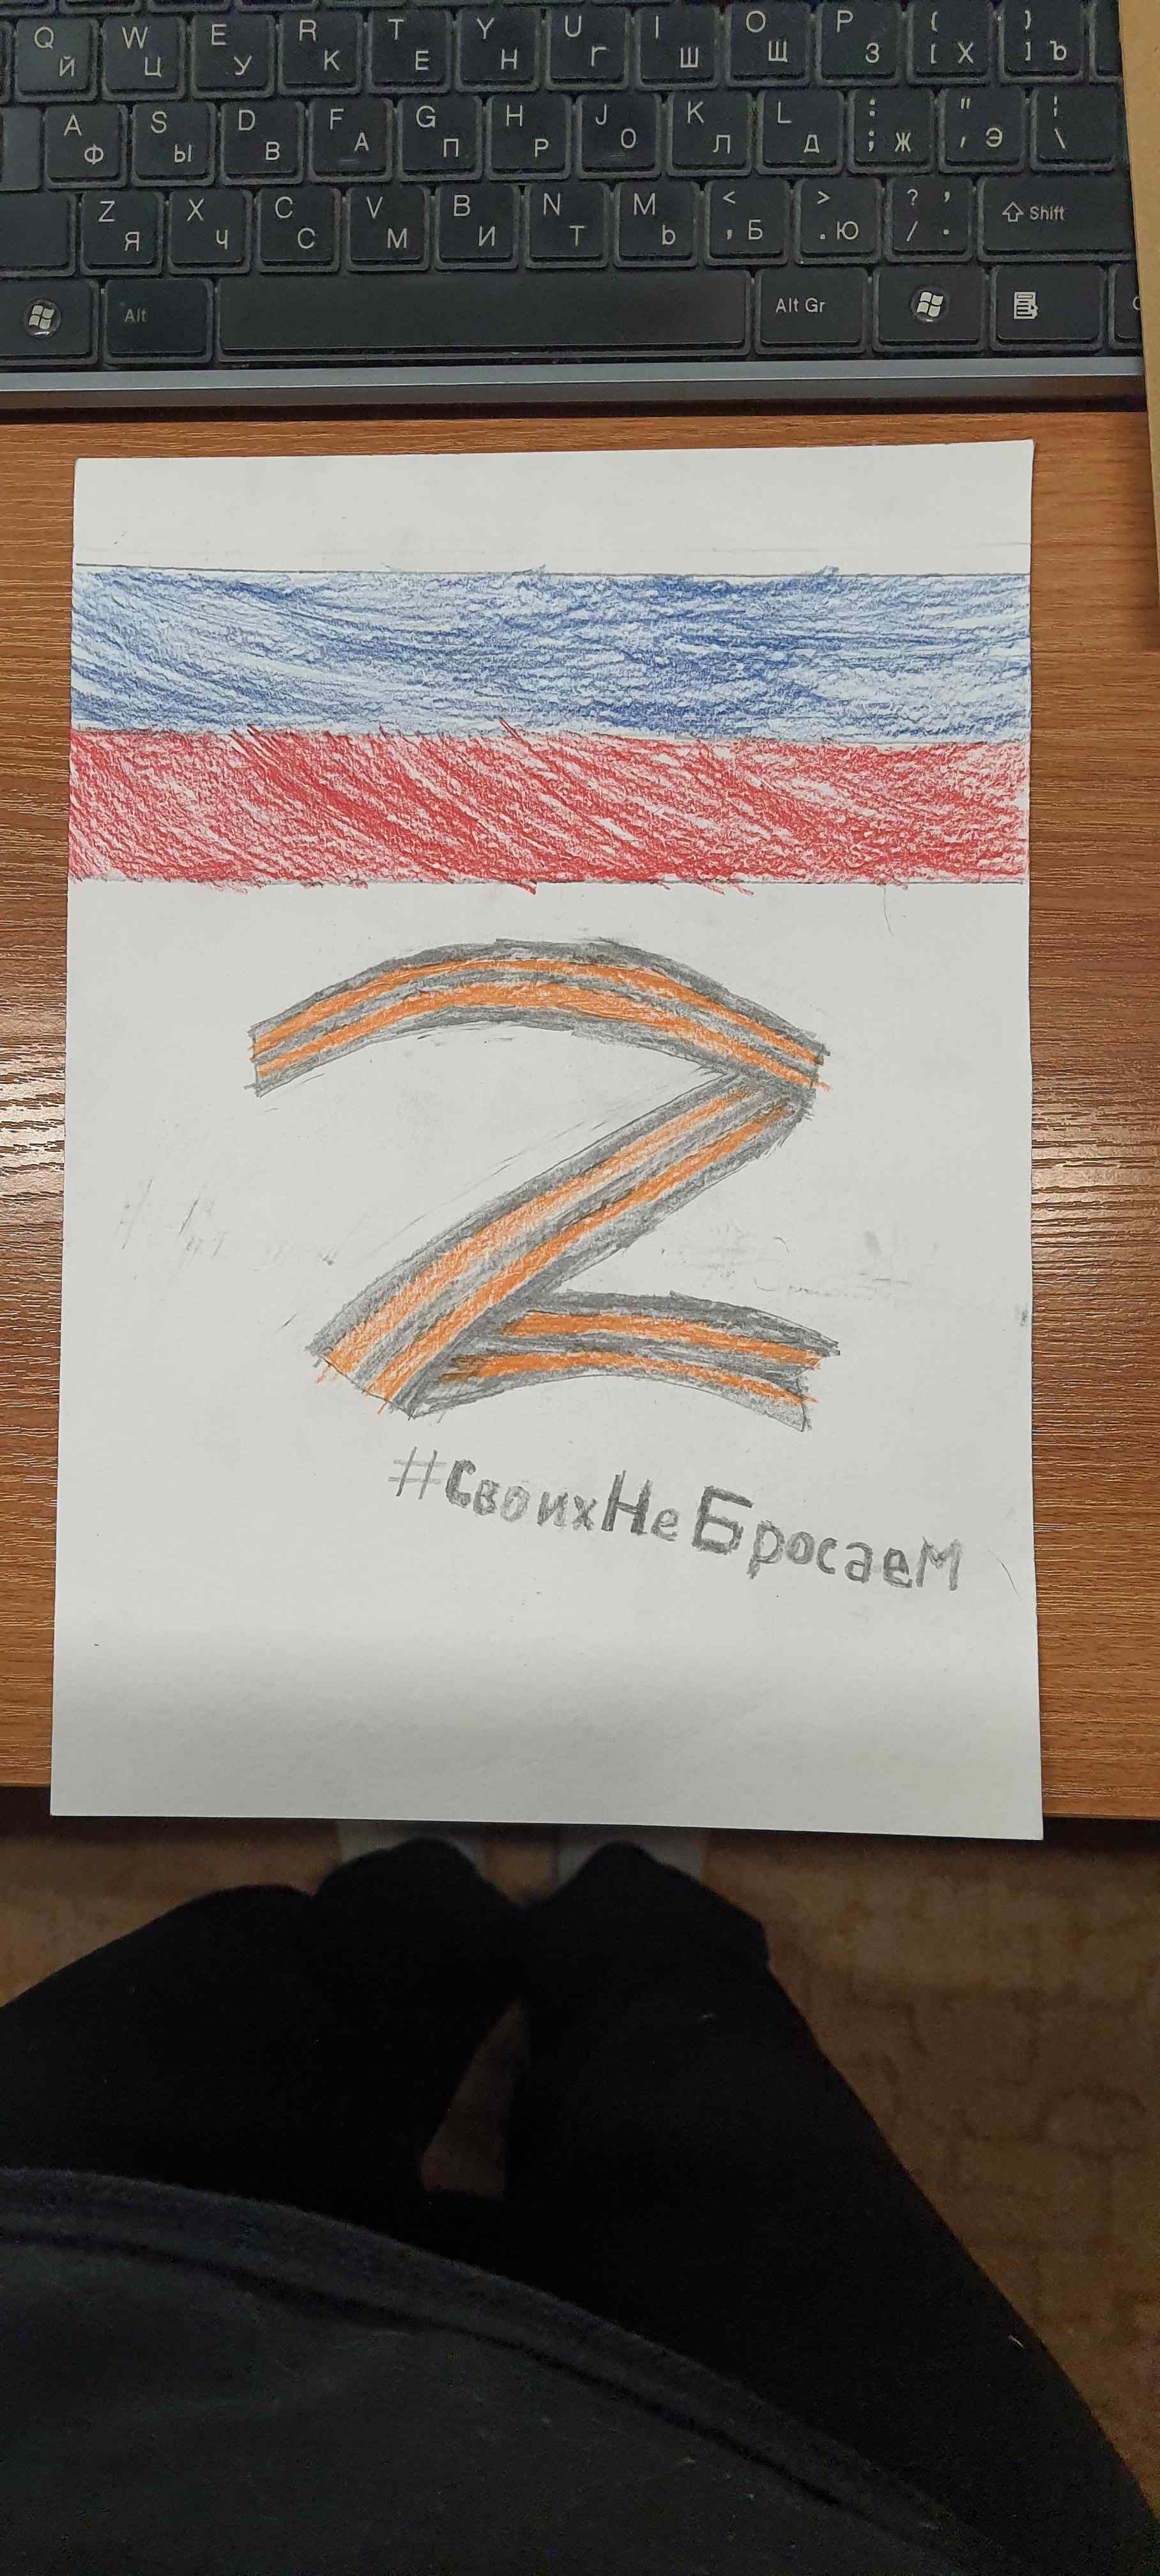 Q Й W Ц E У R К T Е Y Н U Г I Ш O Щ P З { [ Х } ] Ъ
A Ф S Ы D В F А G П H Р J О K Л L Д : ; Ж " ' Э ¦ \
Z Я X Ч C С V М B И N Т M Ь < , Б > . Ю ? / , . Shift
Alt Alt Gr
Z
#СвоихНеБросаем